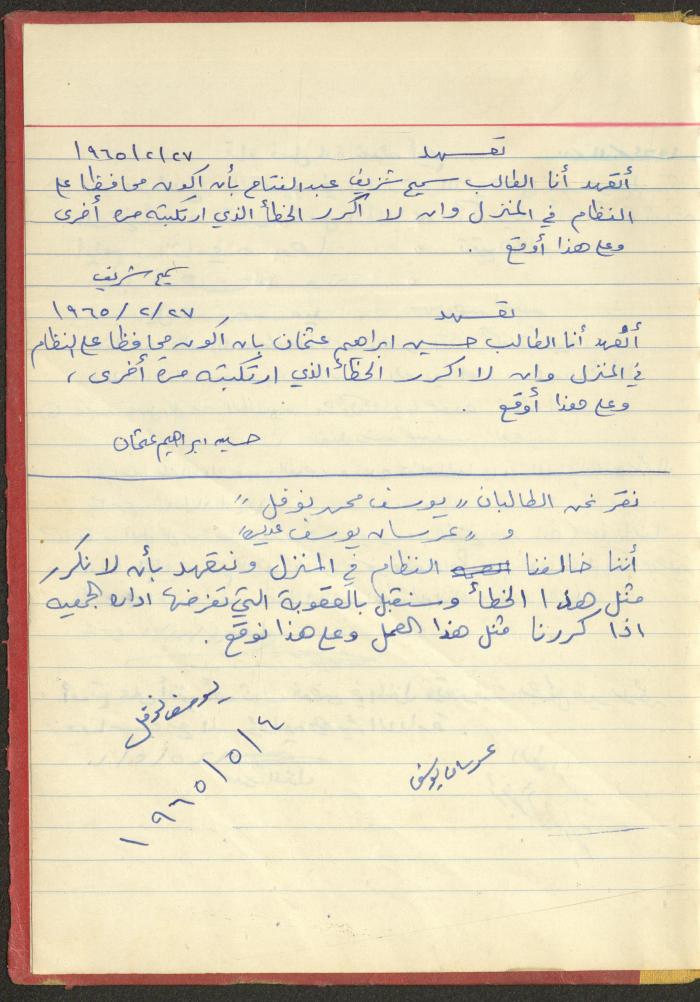 تعهد ١٩٦٥/٢/٢٧
أتعهد أنا الطالب سميح شريف عبد الفتاح بأن اكون محافظا على
النظام في المنزل وان لا اكرر الخطأ الذي ارتكبته مرة أخرى
وعلى هذا أوقع .
سميح شريف
تعهد ١٩٦٥/٢/٢٧
أتعهد أنا الطالب حسين ابراهيم عثمان بان اكون محافظا على النظام
في المنزل وان لا اكرر الخطأ الذي ارتكبته مرة أخرى ،
وعلى هذا أوقع .
حسين ابراهيم عثمان
نقر نحن الطالبان " يوسف محمد نوفل "
و " عرسان يوسف "
أننا خالفنا النظام في المنزل ونتعهد بأن لا نكرر
مثل هذا الخطأ وسنقبل بالعقوبة التي تفرضها ادارة الجمعيه
اذا كررنا مثل هذا العمل وعلى هذا نوقع .
يوسف نوفل
عرسان يوسف
١٩٦٥/٥/٤